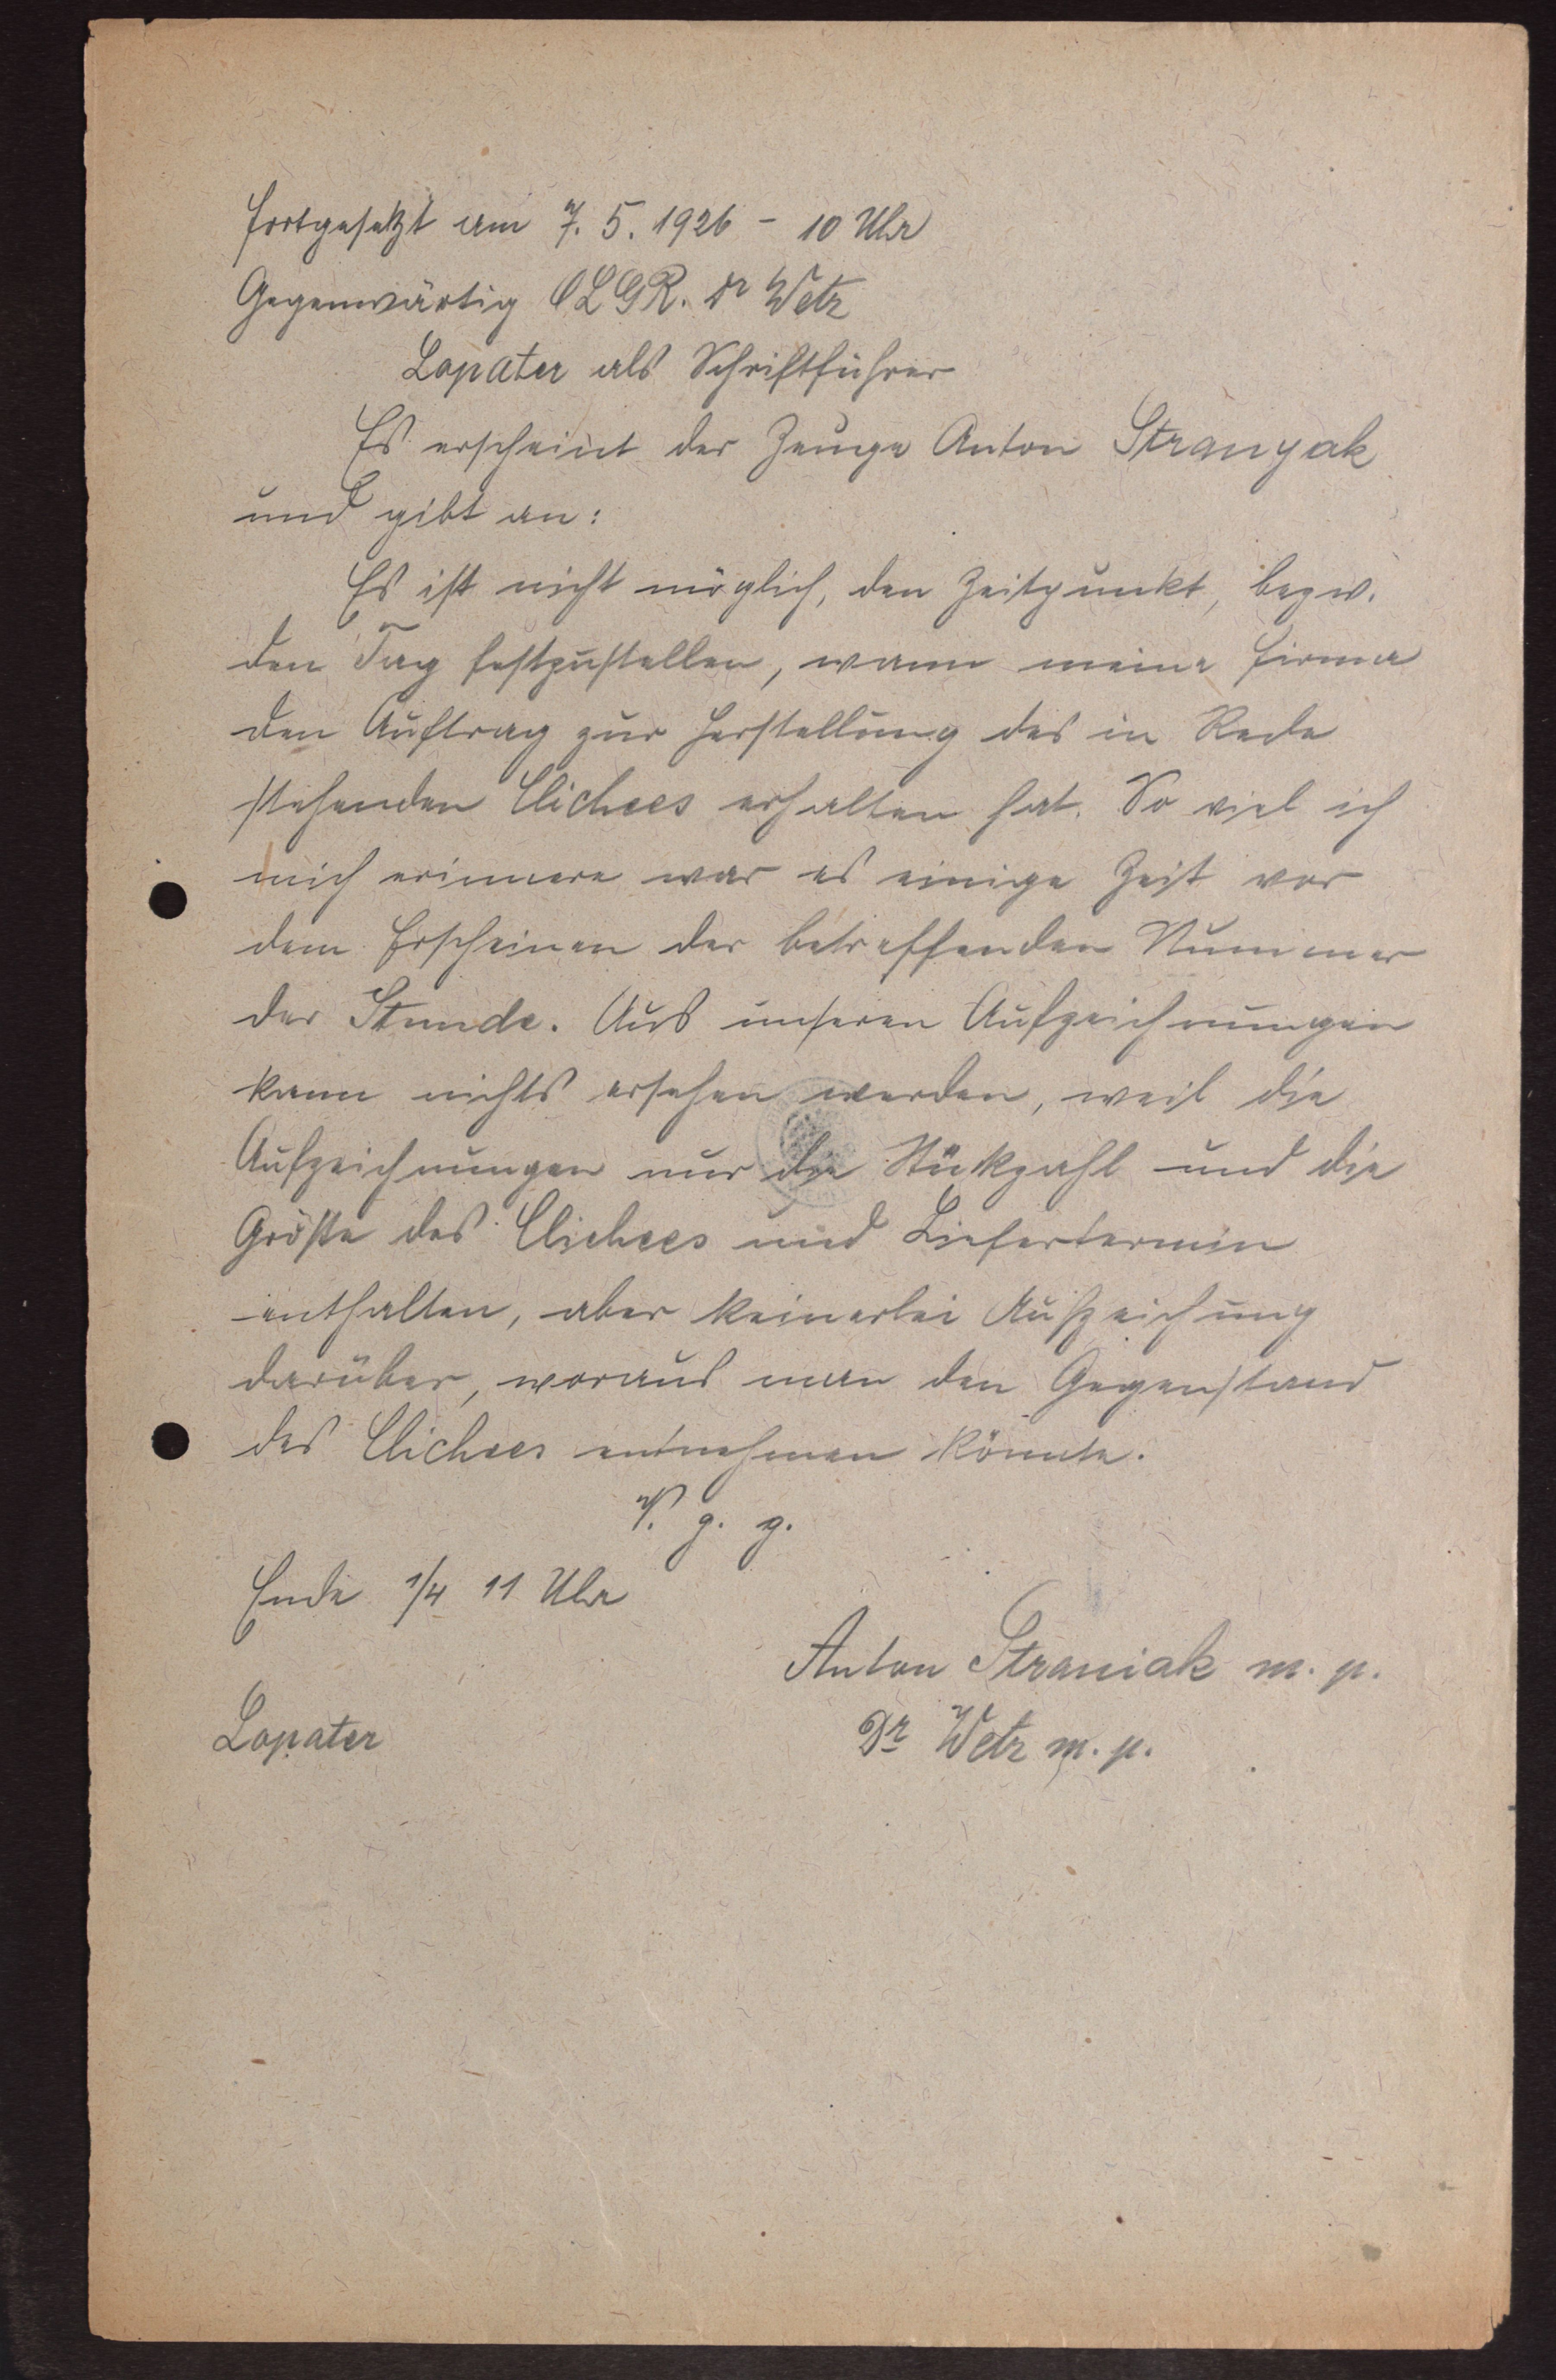 fortgesetzt am 7. 5. 1926 - 10 Uhr
Gegenwärtig OLGR. Dr Wetz
Lopater als Schriftführer
Es erscheint der Zeuge Anton Stranyak
und gibt an:
Es ist nicht möglich, den Zeitpunkt, bezw.
den Tag festzustellen, wann meine Firma
den Auftrag zur Herstellung des in Rede
stehenden Clichees erhalten hat. So viel ich
mich erinnere war es einige Zeit vor
dem Erscheinen der betreffenden Nummer
der Stunde. Aus unseren Aufzeichnungen
kann nichts ersehen werden, weil die
Aufzeichnungen nur die Stükzahl und die
Größe des Clichees und Liefertermin
enthalten, aber keinerlei Aufzeichung
darüber, woraus man den Gegenstand
des Clichees entnehmen könnte.
V. g. g.
Ende 1/4 11 Uhr
Anton Straniak m. p.
Lopater
Dr Wetz m. p.